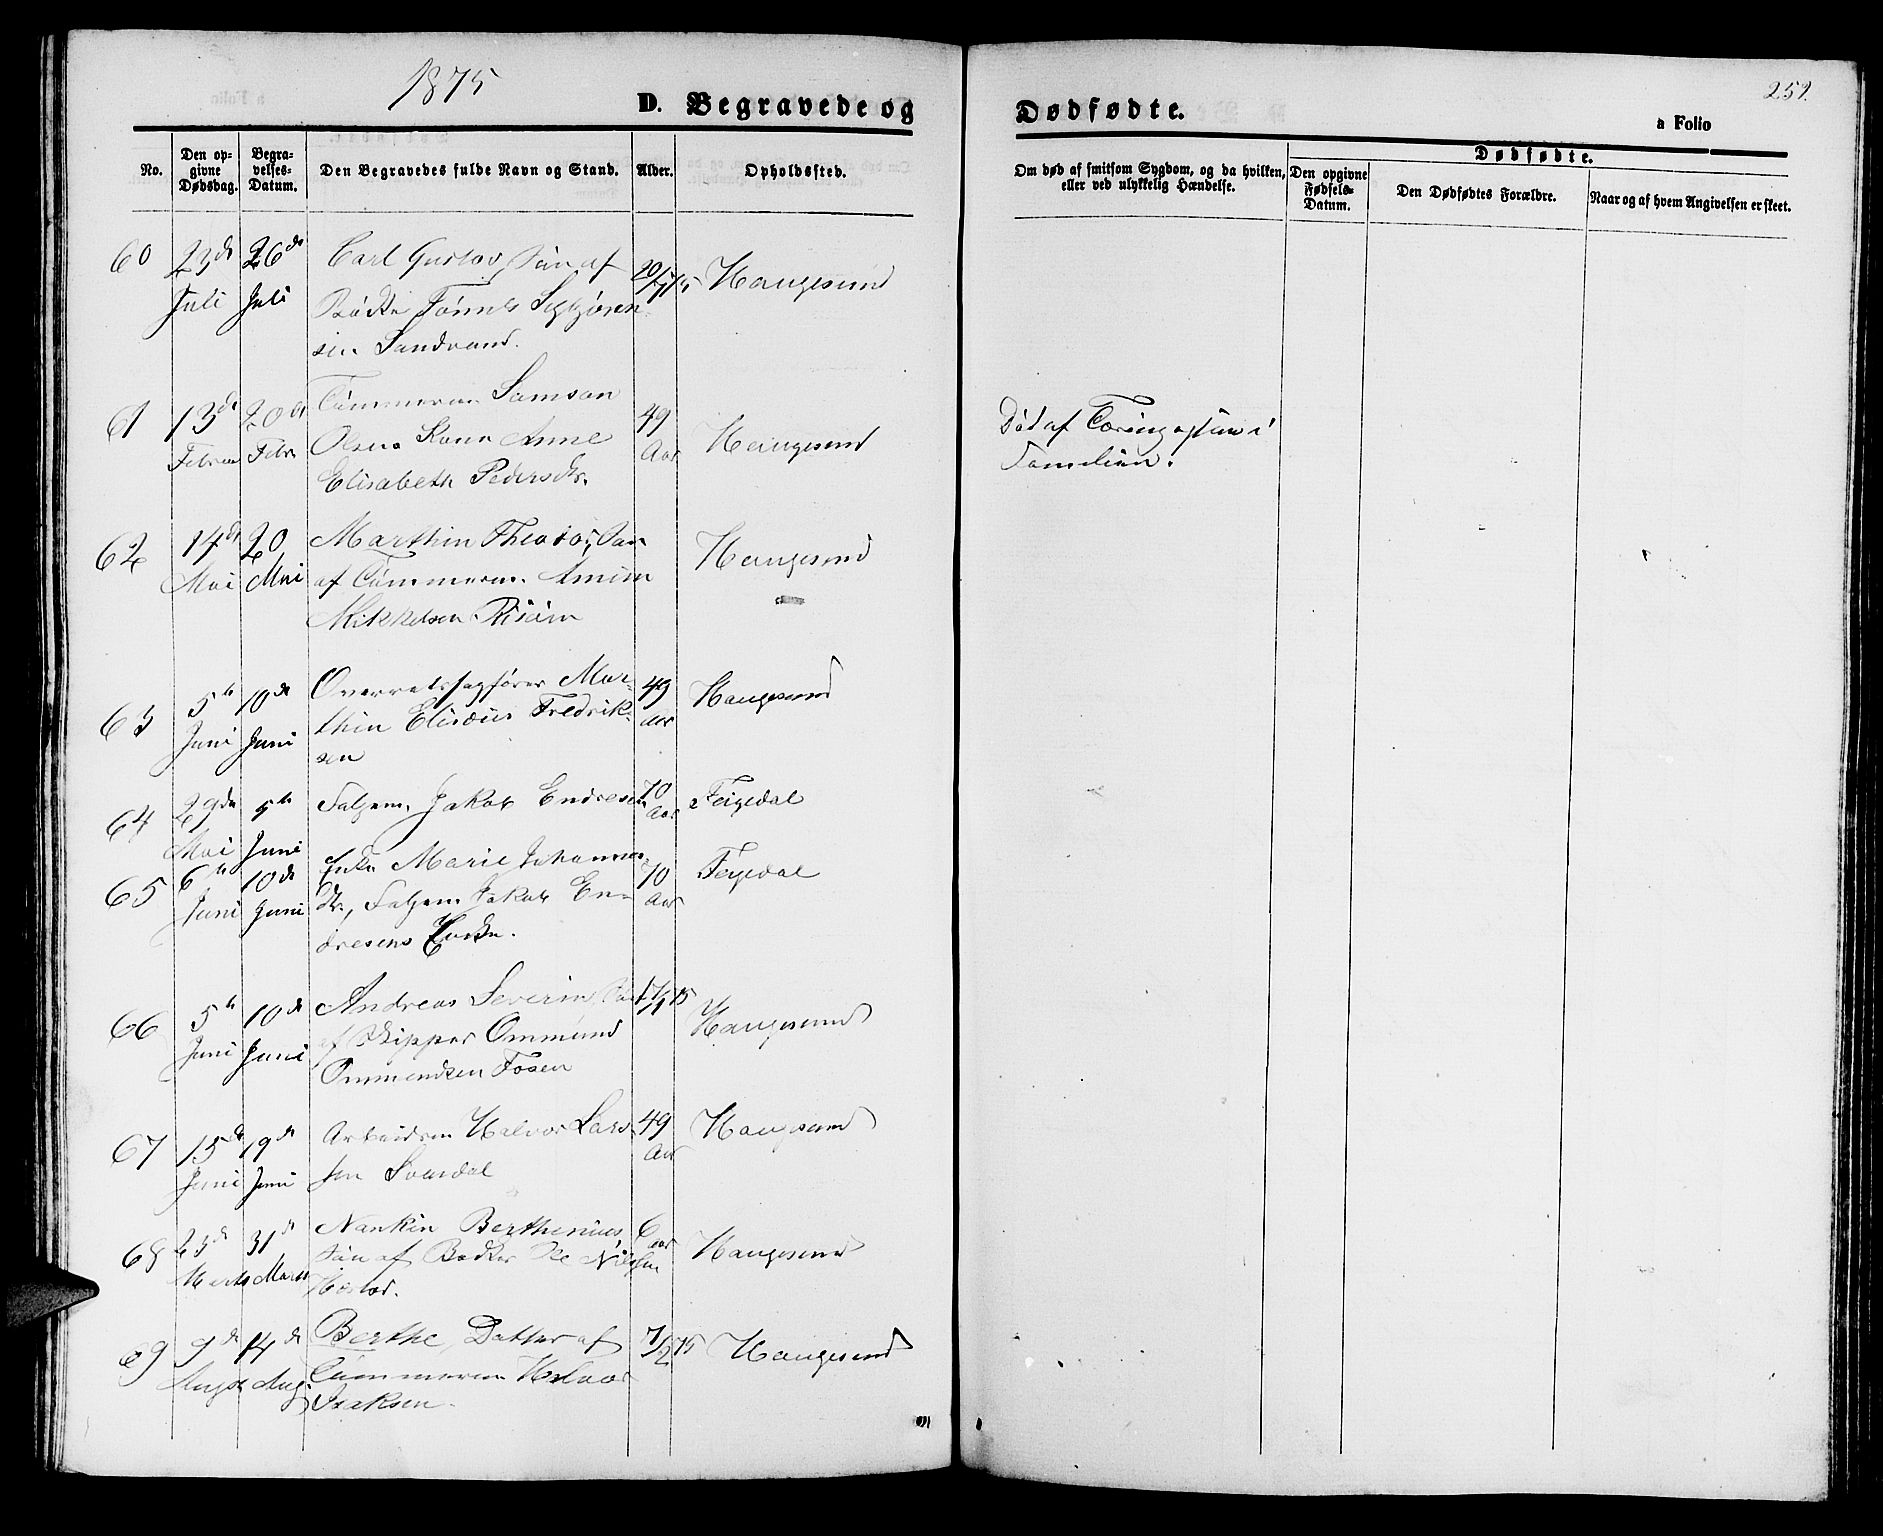 1875
D. Begravede og
Dødfødte.
252.
a Folio
No.
Den opgivne Dødsdag.
Begravelses-Datum.
Den Begravedes fulde Navn og Stand.
Alder.
Opholdssted.
Om død af smitsom Sygdom, og da hvilken, eller ved ulykkelig Hændelse.
Dødfødte.
Den opgivne Fødsels-Datum.
Den Dødfødtes Forældre.
Naar og af hvem Angivelsen er skeet.
60 23de Juli 26de Juli
Carl Gustav, Søn af
Bødker Tønnes
sen Sandvand.
Haugesund
61 13de Februar 20de Febr
Tømmerm. Samson
Olsens Kone Anne
Elisabeth Pedersdtr.
49 Aar
Haugesund
Død af Tæring
Familien.
62 14de Mai 20 Mai
Marthin Theodor, Søn
af Tømmerm.
Mikkelsen Risøen
Haugesund
63 5te Juni 10de Juni
Overretssagfører Mar-
thin Elisæus Fredrik-
sen
49 aar
Haugesund
64 29de Mai 5te Juni
Jakob Endresen
70 Aar
Feigedal
65 6te Juni 10de Juni
Enke Marie Johannes-
dtr, Jakob En-
dresens Enke.
70 Aar
Feigedal
66 5te Juni 10de Juni
Andreas Severin, Søn
af Skipper Ommund
Ommundsen Fosen
Haugesund
67 15de Juni 19de Juni
Arbeidsm Halvor Lars-
sen Svardal
49 Aar
Haugesund
68 23de Marts 31te Marts
Nankin Berthenius,
Søn af Bødker Ole Nilssen
6 aar
Haugesund
69 9de August 14de Aug.
Berthe, Datter af
Tømmerm Halvor
Isaksen.
7/2 75
Haugesund